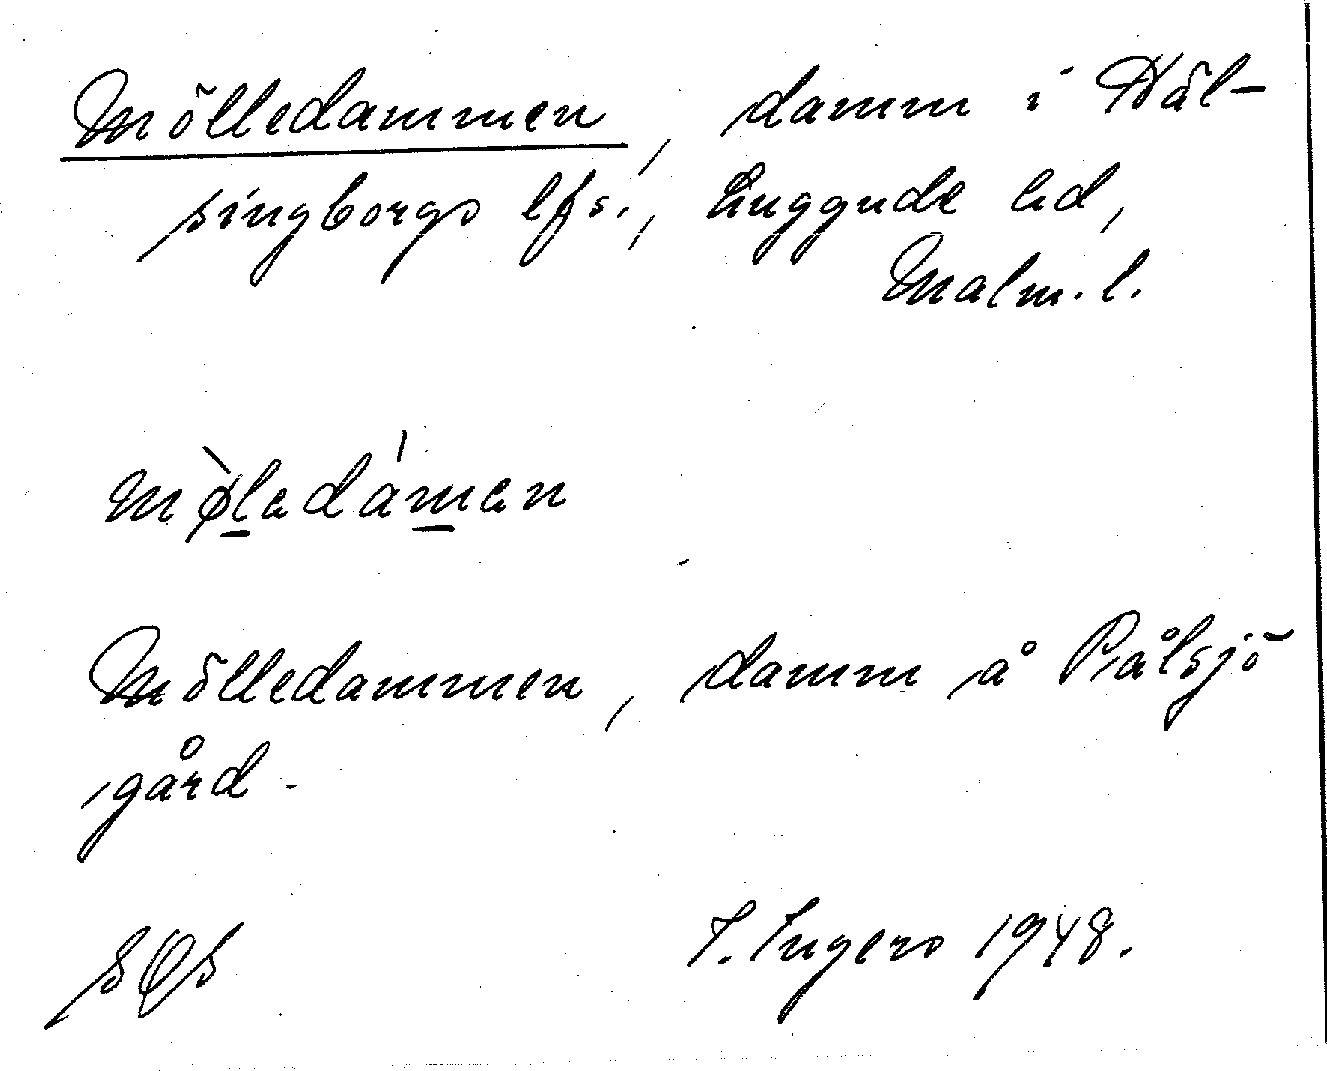 Mölledammen, damm i Häl-
singborgs lfs., Luggude hd,
Malm. l.
mø̀ladámen
Mölledammen, damm å Pålsjö
gård.
I. Ingers 1948.